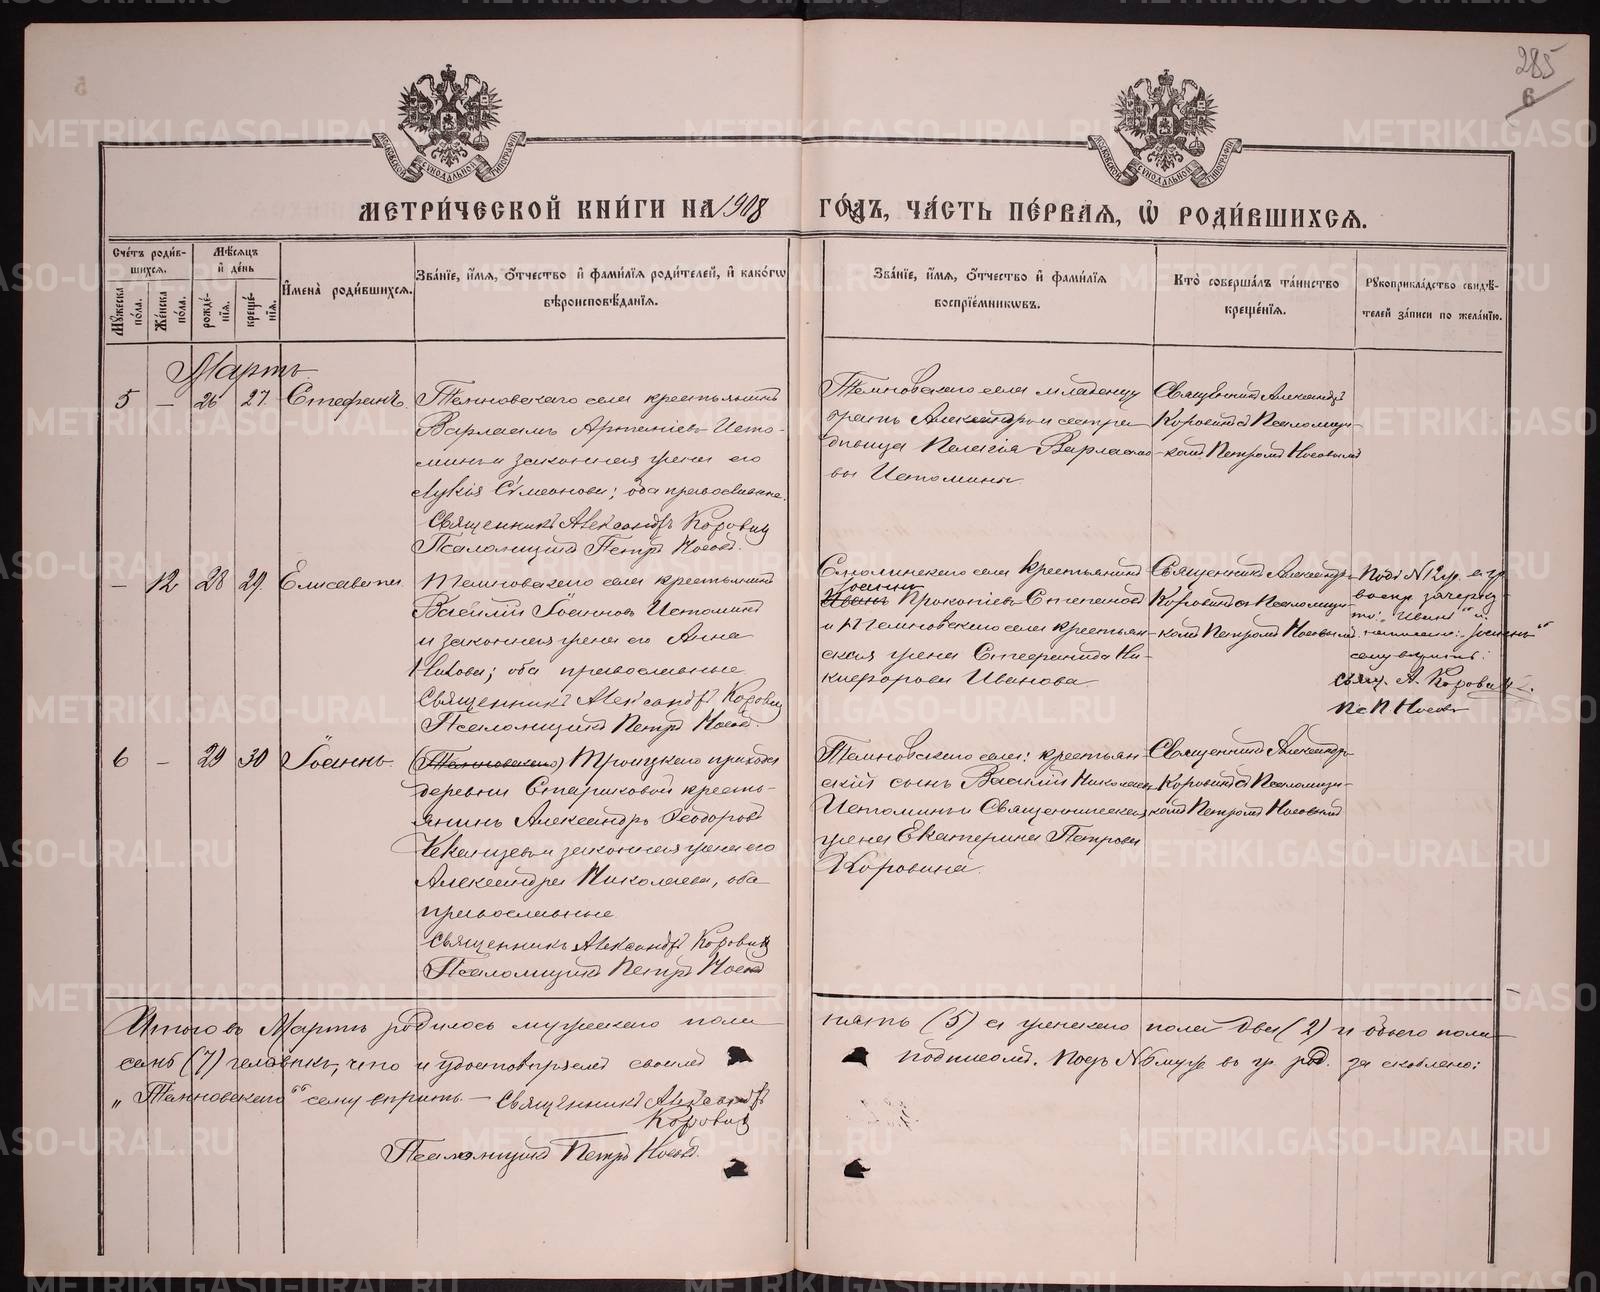 285
6
МЕТРИ́ЧЕСКОЙ КНИ́ГИ НА 1908 ГО́ДЪ, ЧА́СТЬ ПЕ́РВАЯ, Ѡ҆ РОДИ́ВШИХСЯ.
Сче́тъ роди́в-
шихся.
Мꙋ́жеска по́ла.
Же́нска по́ла.
Мѣ́сяцъ и҆ де́нь
рожде́-
нїя.
креще́-
нїя.
И҆мена̀ роди́вшихся.
Зва́нїе, и҆́мя, ѻ҆́тчество и҆ фами́лїя роди́телей, и҆ како́гѡ
вѣроисповѣ́данїя.
Зва́нїе, и҆́мя, ѻ҆́тчество и҆ фами́лїя
воспрїе́мникѡвъ.
Кто̀ соверша́лъ та́инство
креще́нїя.
Рꙋкоприкла́дство свидѣ́-
телей за́писи по жела́нїю.
Мартъ
5 — 26 27 Стефанъ
Темновскаго села крестьянинъ
Варлаамъ Исто-
минъ и законная жена его
Лукія Сѷмеонова; оба православные.
Священникъ Александръ Коровинъ
Псаломщикъ Петръ Носовъ.
Темновскаго села младенцу
братъ Александръ и сестра
дѣвица Пелагія Варлаамо-
вы Истомины.
Священникъ Александръ
Коровинъ съ Псаломщи-
комъ Петромъ Носовымъ
— 12 28 29 Елисавета
Темновскаго села крестьянинъ
Василій Іоанновъ Истоминъ
и законная жена его Анна
оба православные
Священникъ Александръ Коровинъ
Псаломщикъ Петръ Носовъ.
села крестьянинъ
Іоаннъ
Иванъ Прокопіевъ Степановъ
и Темновскаго села крестьян-
ская жена Стефанида Ни-
кифорова Иванова.
Священникъ Александръ
Коровинъ съ Псаломщи-
комъ Петромъ Носовымъ
Подъ № 12 ж. въ гр.
воспр. зачеркну-
то: „Иванъ“ и
написано: „Іоаннъ“
сему вѣрить:
Свящ. А. Коровинъ.
Пс П Носовъ
6 — 29 30 Іоаннъ.
(Темновскаго) Троицкаго прихода
деревни Стариковой кресть-
янинъ Александръ Ѳеодоровъ
и законная жена его
Александра Николаева, оба
православные
Священникъ Александръ Коровинъ
Псаломщикъ Петръ Носовъ
Темновскаго села: крестьян-
скій сынъ Василій Николаевъ
Истоминъ и Священническая
жена Екатерина Петрова
Коровина.
Священникъ Александръ
Коровинъ съ Псаломщи-
комъ Петромъ Носовымъ
Итого въ Мартѣ родилось мужескаго пола пять (5) а женскаго пола два (2) и обоего пола
семь (7) человѣкъ, что и удостовѣряемъ своимъ подписомъ. Подъ № 6 муж. въ гр. род. за скоблено:
„Темновскаго“ сему вѣрить — Священникъ Александръ
Коровинъ
Псаломщикъ Петръ Носовъ.
METRIKI.GASO-URAL.RU